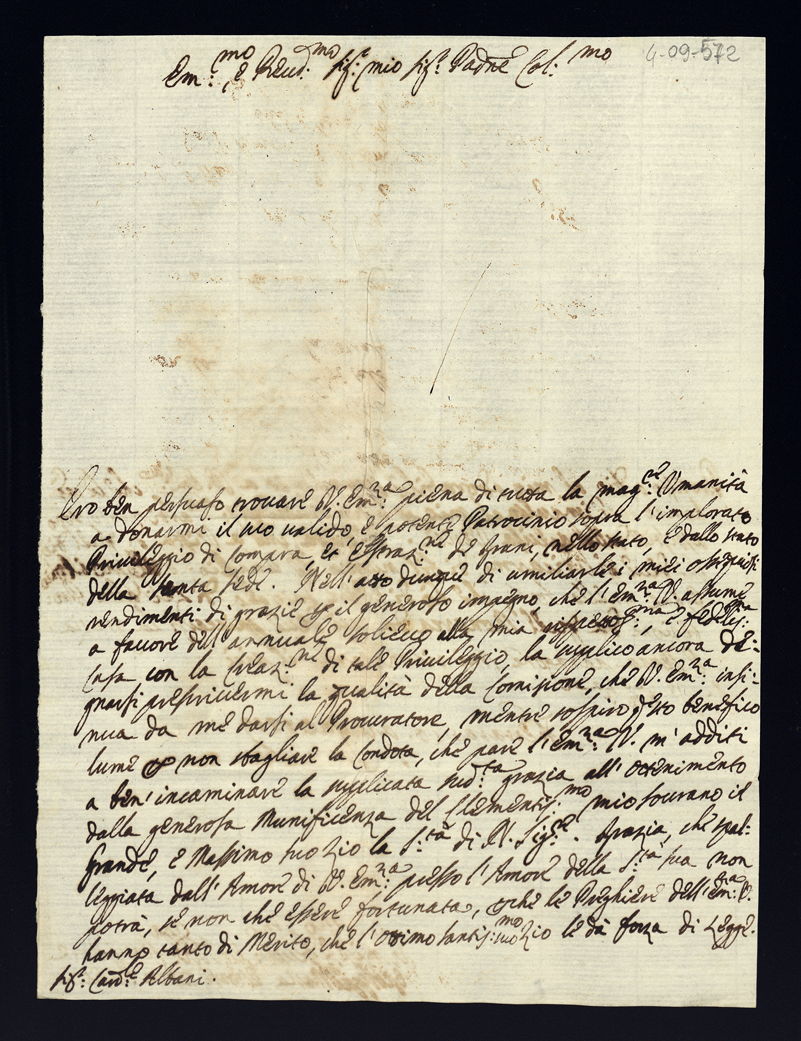 4-09-572
Em:mo, e Reud:mo Sig:r mio Sig:r Padne Col:mo
Ero ben persuaso trouare V. Em:za piena di tutta la mag:ce Umanità
a donarmi il suo ualido, e potente Patrocinio sopra l'implorato
Priuileggio di Compra, et estraz:ne de Grani, nello stato, e dallo stato
della Santa Sede. Nell'atto dunque di umiliarle i miei ossequiosi
rendimenti di grazie per il generoso impegno, che l'Em:za V. assume
a fauore dell'annuale solieuo alla mia, e fedelis:ma
Casa con la Creaz:ne di tale Priuileggio, la supplico ancora de:
gnarsi prescriuermi la qualità della Comisione, che V. Em:za insi:
nua da me darsi al Procuratore, mentre sospiro questo benefico
lume per non sbagliare la Condota, che pare l'Em:za V. m'additi
a ben'incaminare la supplicata sud:ta grazia all'ottenimento
dalla generosa Munificenza del Clementis:mo mio Sourano il
Grande, e Massimo suo Zio la S:tà di N. Sig:re. Grazia, che spal:
leggiata dall'Amore di V. Em:za presso l'Amore della S:tà sua non
potrà, se non che essere fortunata, perche le Preghiere dell'Em:za V.
hanno tanto di Merito, che l'ottimo Santis:mo suo Zio le dà forza di Legge.
Sig:r Card:e Albani.